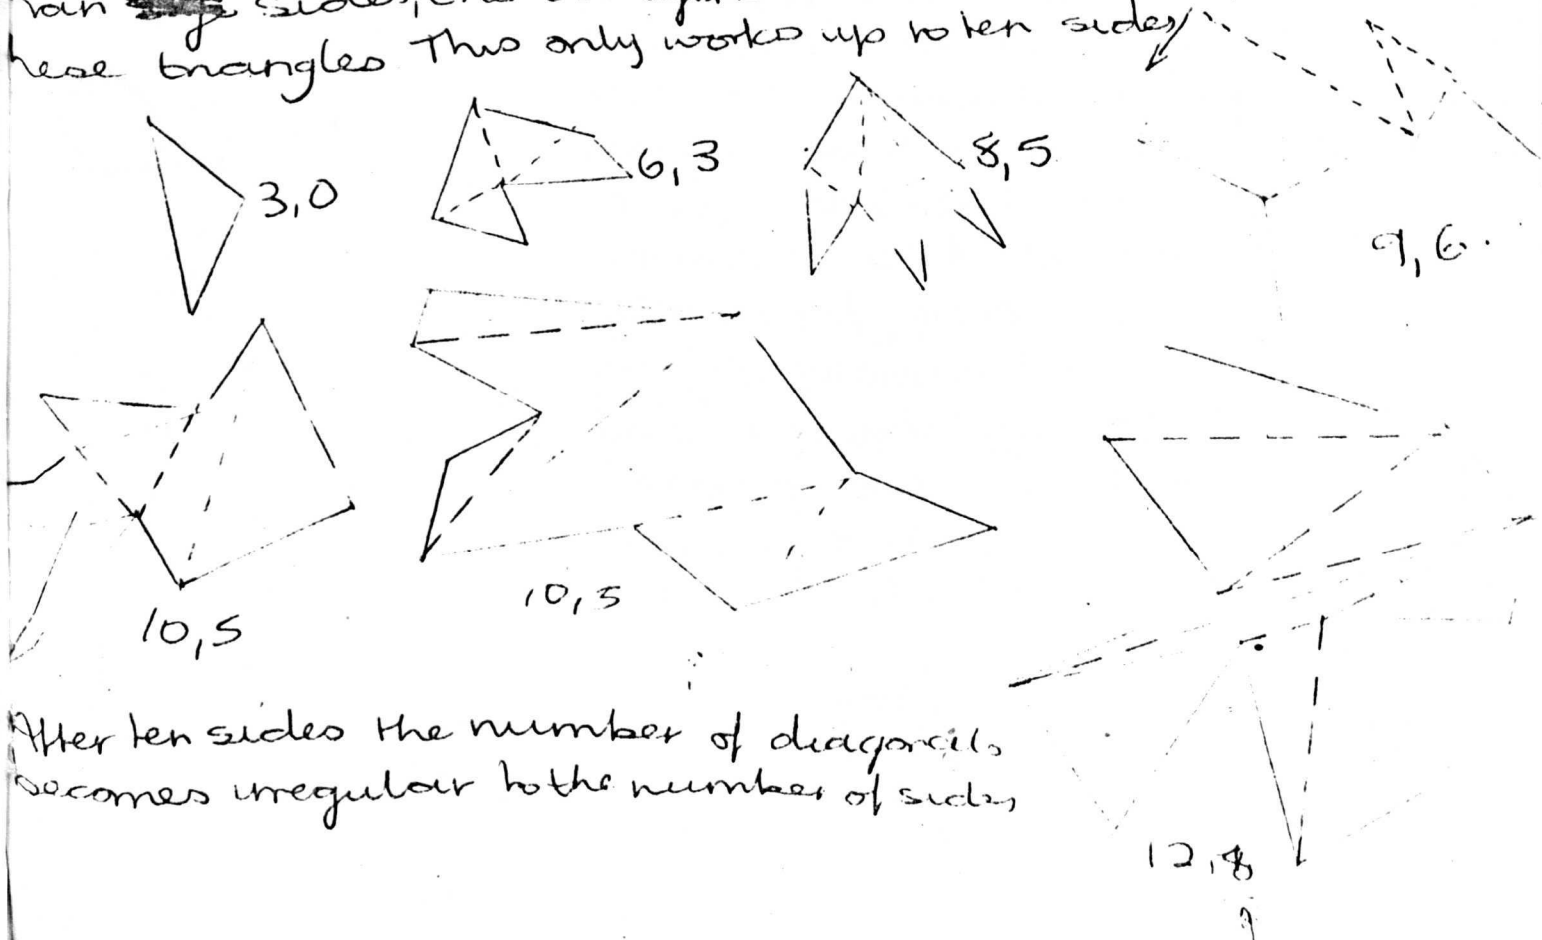 sides,
hese triangles This only works up to ten sides
3,0
6,3
8,5
9,6.
10,5
10,5
After ten sides the number of diagonals
becomes irregular to the number of sides
12,8
?